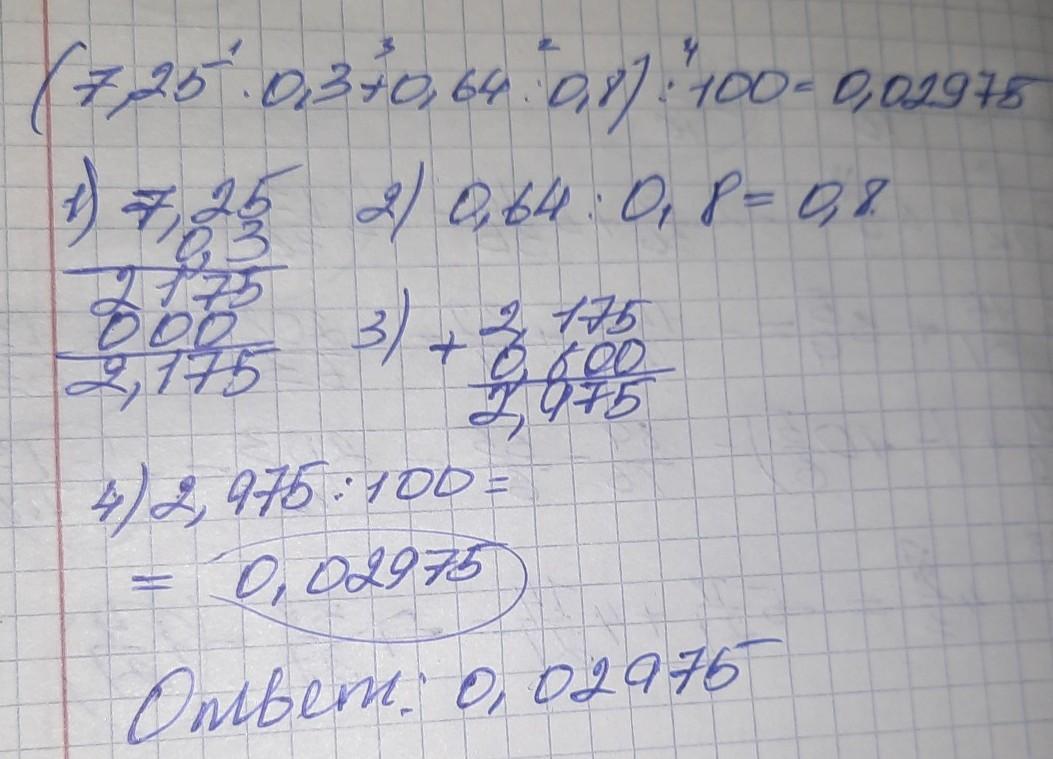 (7,25 · 0,3 + 0,64 : 0,8) : 100 = 0,02975
1 3 2 4
1) 7,25
0,3
2175
000
2,175
2) 0,64 : 0,8 = 0,8
3) + 2,175
0,800
2,975
4) 2,975 : 100 =
= 0,02975
Ответ: 0,02975